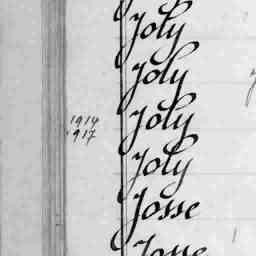 Joly
Joly
1914
1917
Joly
Joly
Josse
Josse